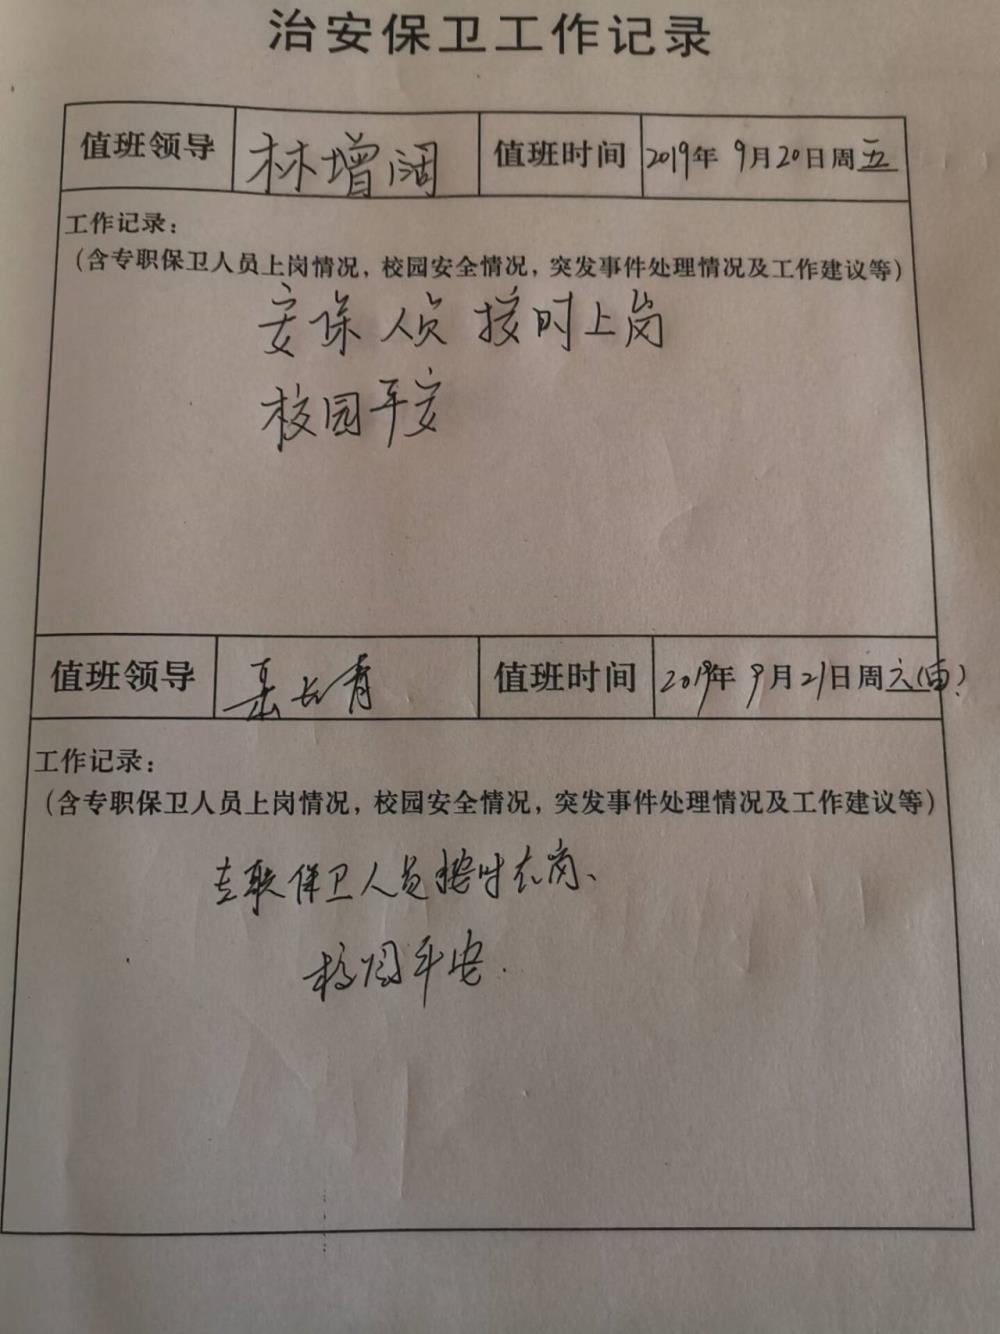 治安保卫工作记录
值班领导 林增阔 值班时间 2019年 9月20日周五
工作记录：
（含专职保卫人员上岗情况，校园安全情况，突发事件处理情况及工作建议等）
安保人员按时上岗
校园平安
值班领导 长青 值班时间 2019年 9月21日周六
工作记录：
（含专职保卫人员上岗情况，校园安全情况，突发事件处理情况及工作建议等）
专职保卫人员按时在岗、
校园平安.